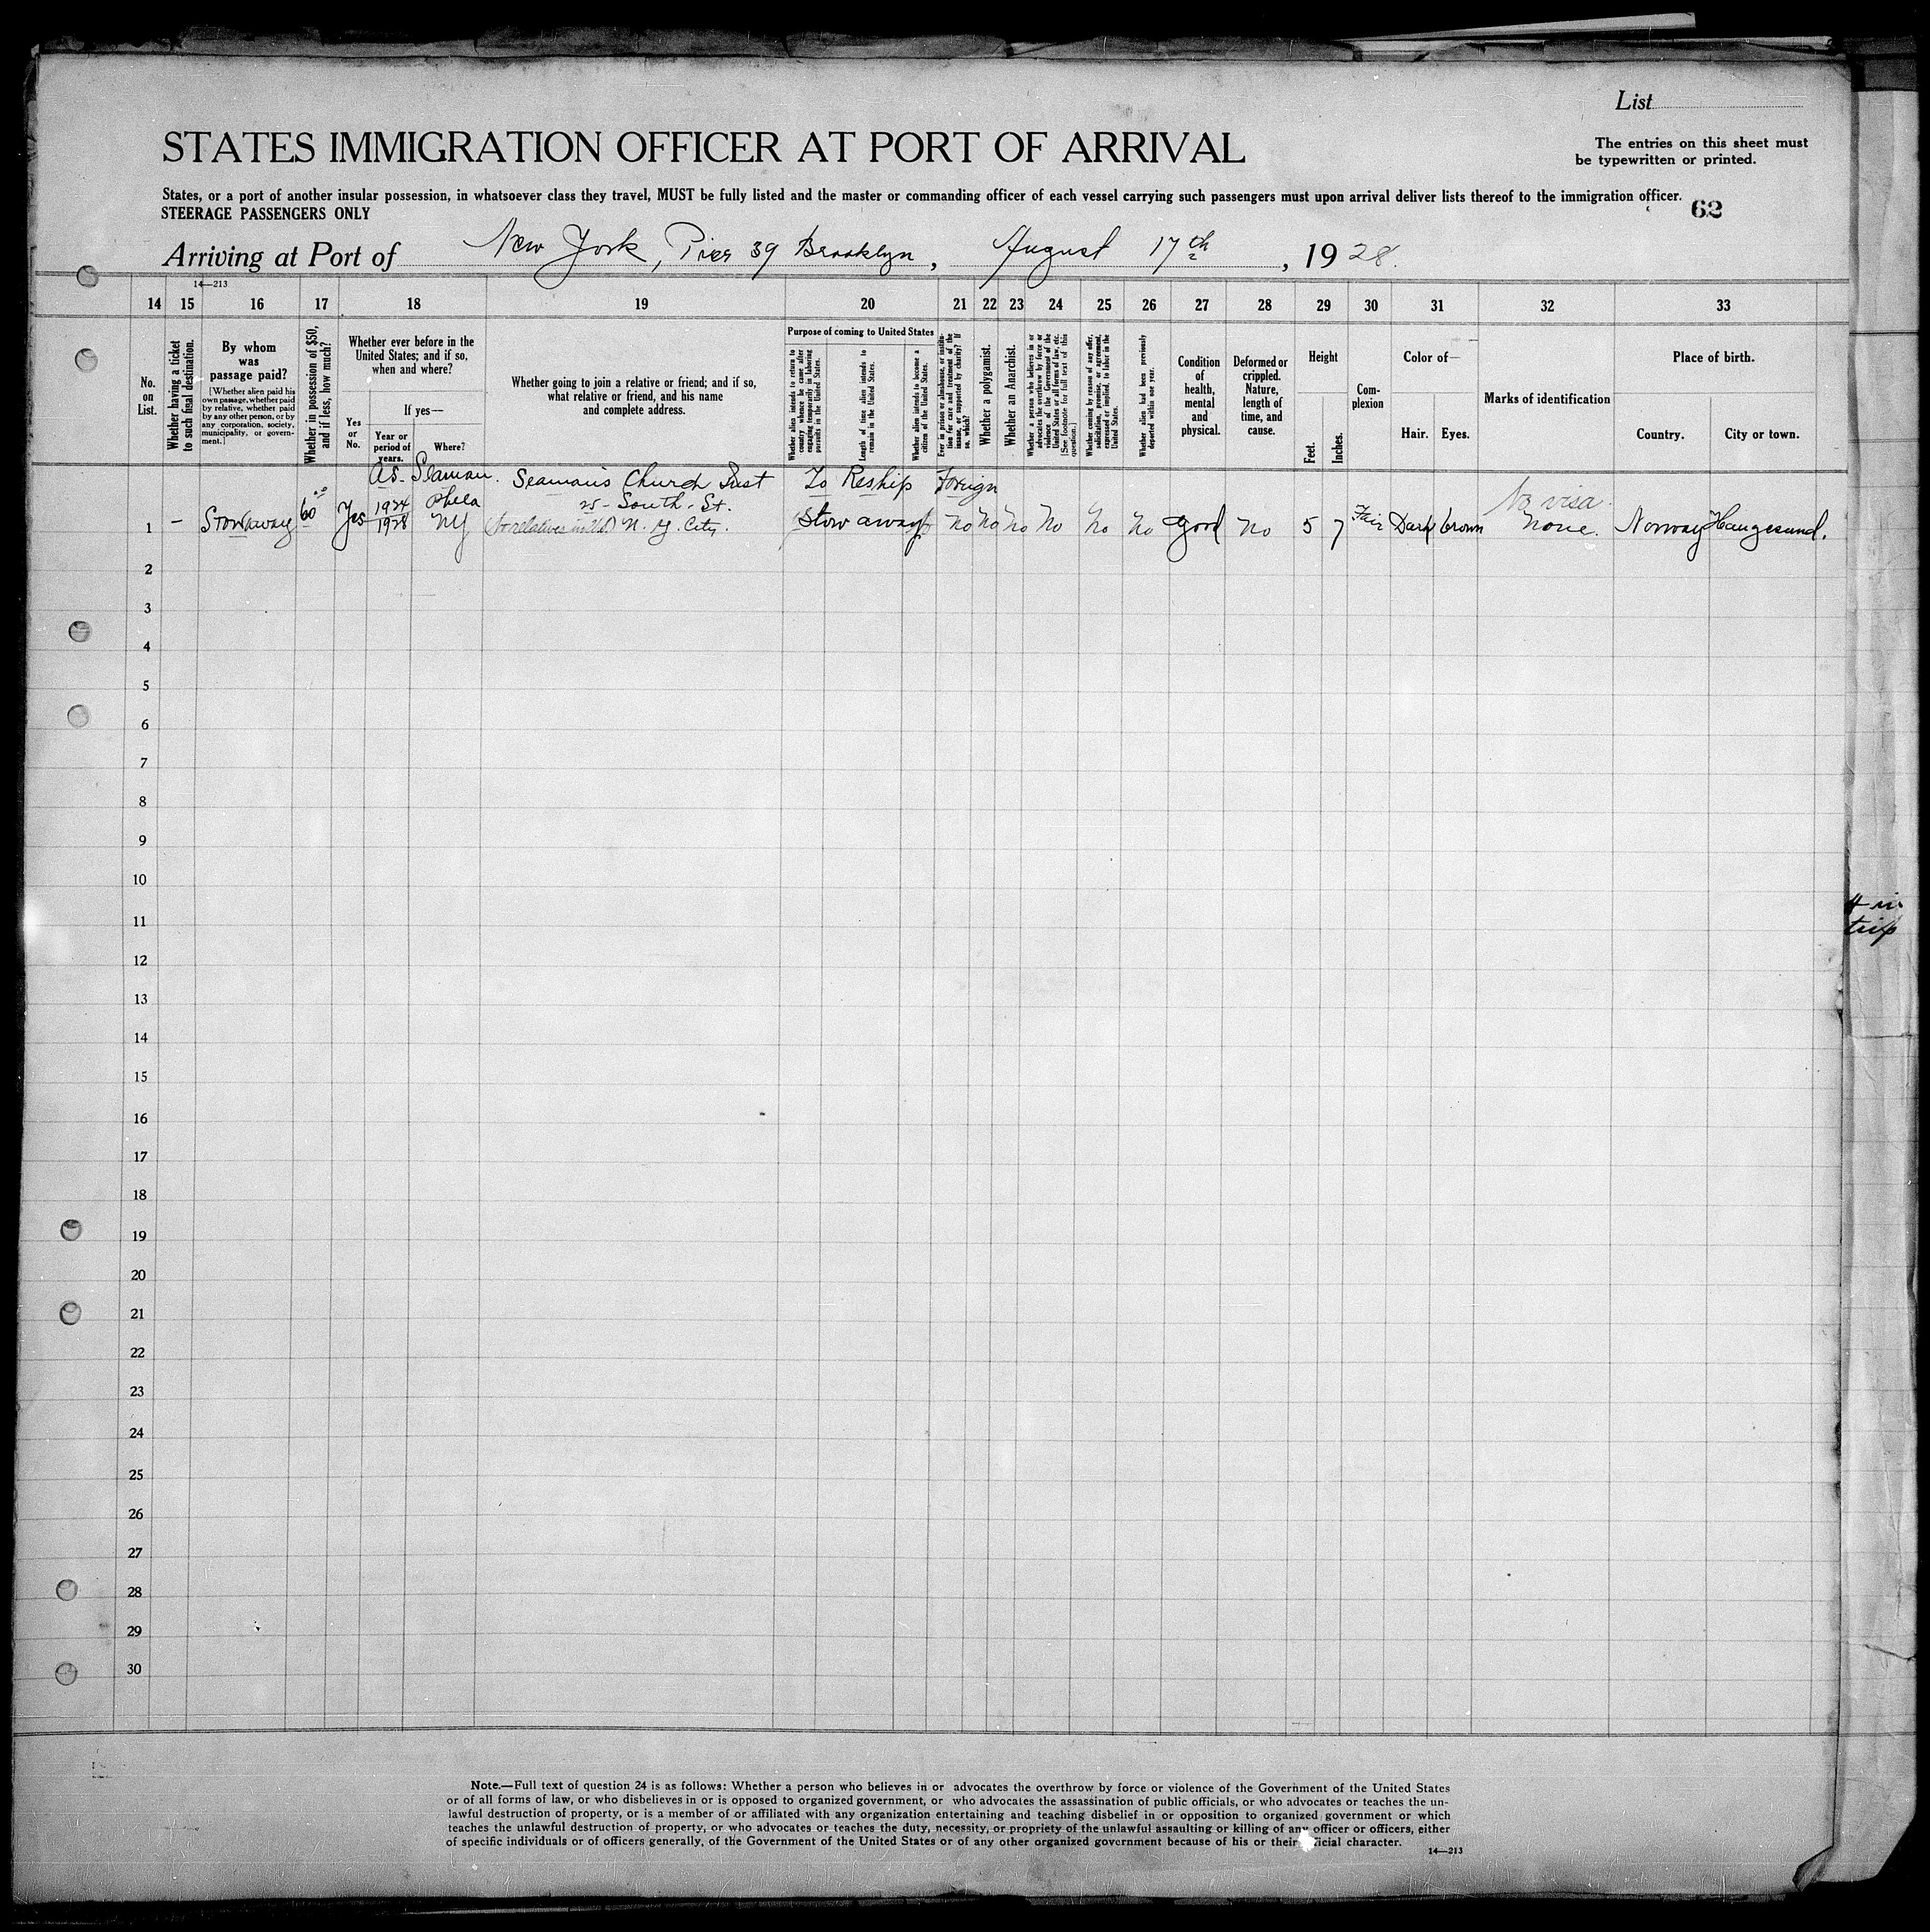 List
STATES IMMIGRATION OFFICER AT PORT OF ARRIVAL
The entries on this sheet must
be typewritten or printed.
States, or a port of another insular possession, in whatsoever class they travel, MUST be fully listed and the master or commanding officer of each vessel carrying such passengers must upon arrival deliver lists thereof to the immigration officer.
STEERAGE PASSENGERS ONLY
62
Arriving at Port of New York, Pier 39 Brooklyn, August 17th, 1928.
14—213
14 15 16 17 18 19 20 21 22 23 24 25 26 27 28 29 30 31 32 33
No. on List.
Whether having a ticket to such final destination.
By whom was passage paid?
[Whether alien paid his own passage, whether paid by relative, whether paid by any other person, or by any corporation, society, municipality, or government.]
Whether in possession of $50, and if less, how much?
Whether ever before in the United States; and if so, when and where?
Yes or No.
If yes—
Year or period of years.
Where?
Whether going to join a relative or friend; and if so, what relative or friend, and his name and complete address.
Purpose of coming to United States
Whether alien intends to return to country whence he came after engaging temporarily in laboring pursuits in the United States.
Length of time alien intends to remain in the United States.
Whether alien intends to become a citizen of the United States.
Ever in prison or almshouse, or institution for care and treatment of the insane, or supported by charity? If so, which?
Whether a polygamist.
Whether an Anarchist.
Whether a person who believes in or advocates the overthrow by force or violence of the Government of the United States or all forms of law, etc. [See footnote for full text of this question.]
Whether coming by reason of any offer, solicitation, promise, or agreement, expressed or implied, to labor in the United States.
Whether alien had been previously deported within one year.
Condition of health, mental and physical.
Deformed or crippled. Nature, length of time, and cause.
Height
Feet.
Inches.
Com-plexion
Color of—
Hair.
Eyes.
Marks of identification
Place of birth.
Country.
City or town.
As Seaman. Seaman's Church Inst To Reship Foreign
1924 Phila 25 - South - St. No visa
1 – Stowaway 60 Yes 1928 NY N. Y. City. Stow away No No No No No No Good No 5 7 Fair Dark brown None. Norway Haugesund.
2
3
4
5
6
7
8
9
10
11
12
13
14
15
16
17
18
19
20
21
22
23
24
25
26
27
28
29
30
trip
Note.—Full text of question 24 is as follows: Whether a person who believes in or advocates the overthrow by force or violence of the Government of the United States
or of all forms of law, or who disbelieves in or is opposed to organized government, or who advocates the assassination of public officials, or who advocates or teaches the un-
lawful destruction of property, or is a member of or affiliated with any organization entertaining and teaching disbelief in or opposition to organized government or which
teaches the unlawful destruction of property, or who advocates or teaches the duty, necessity, or propriety of the unlawful assaulting or killing of any officer or officers, either
of specific individuals or of officers generally, of the Government of the United States or of any other organized government because of his or their official character.
14—213